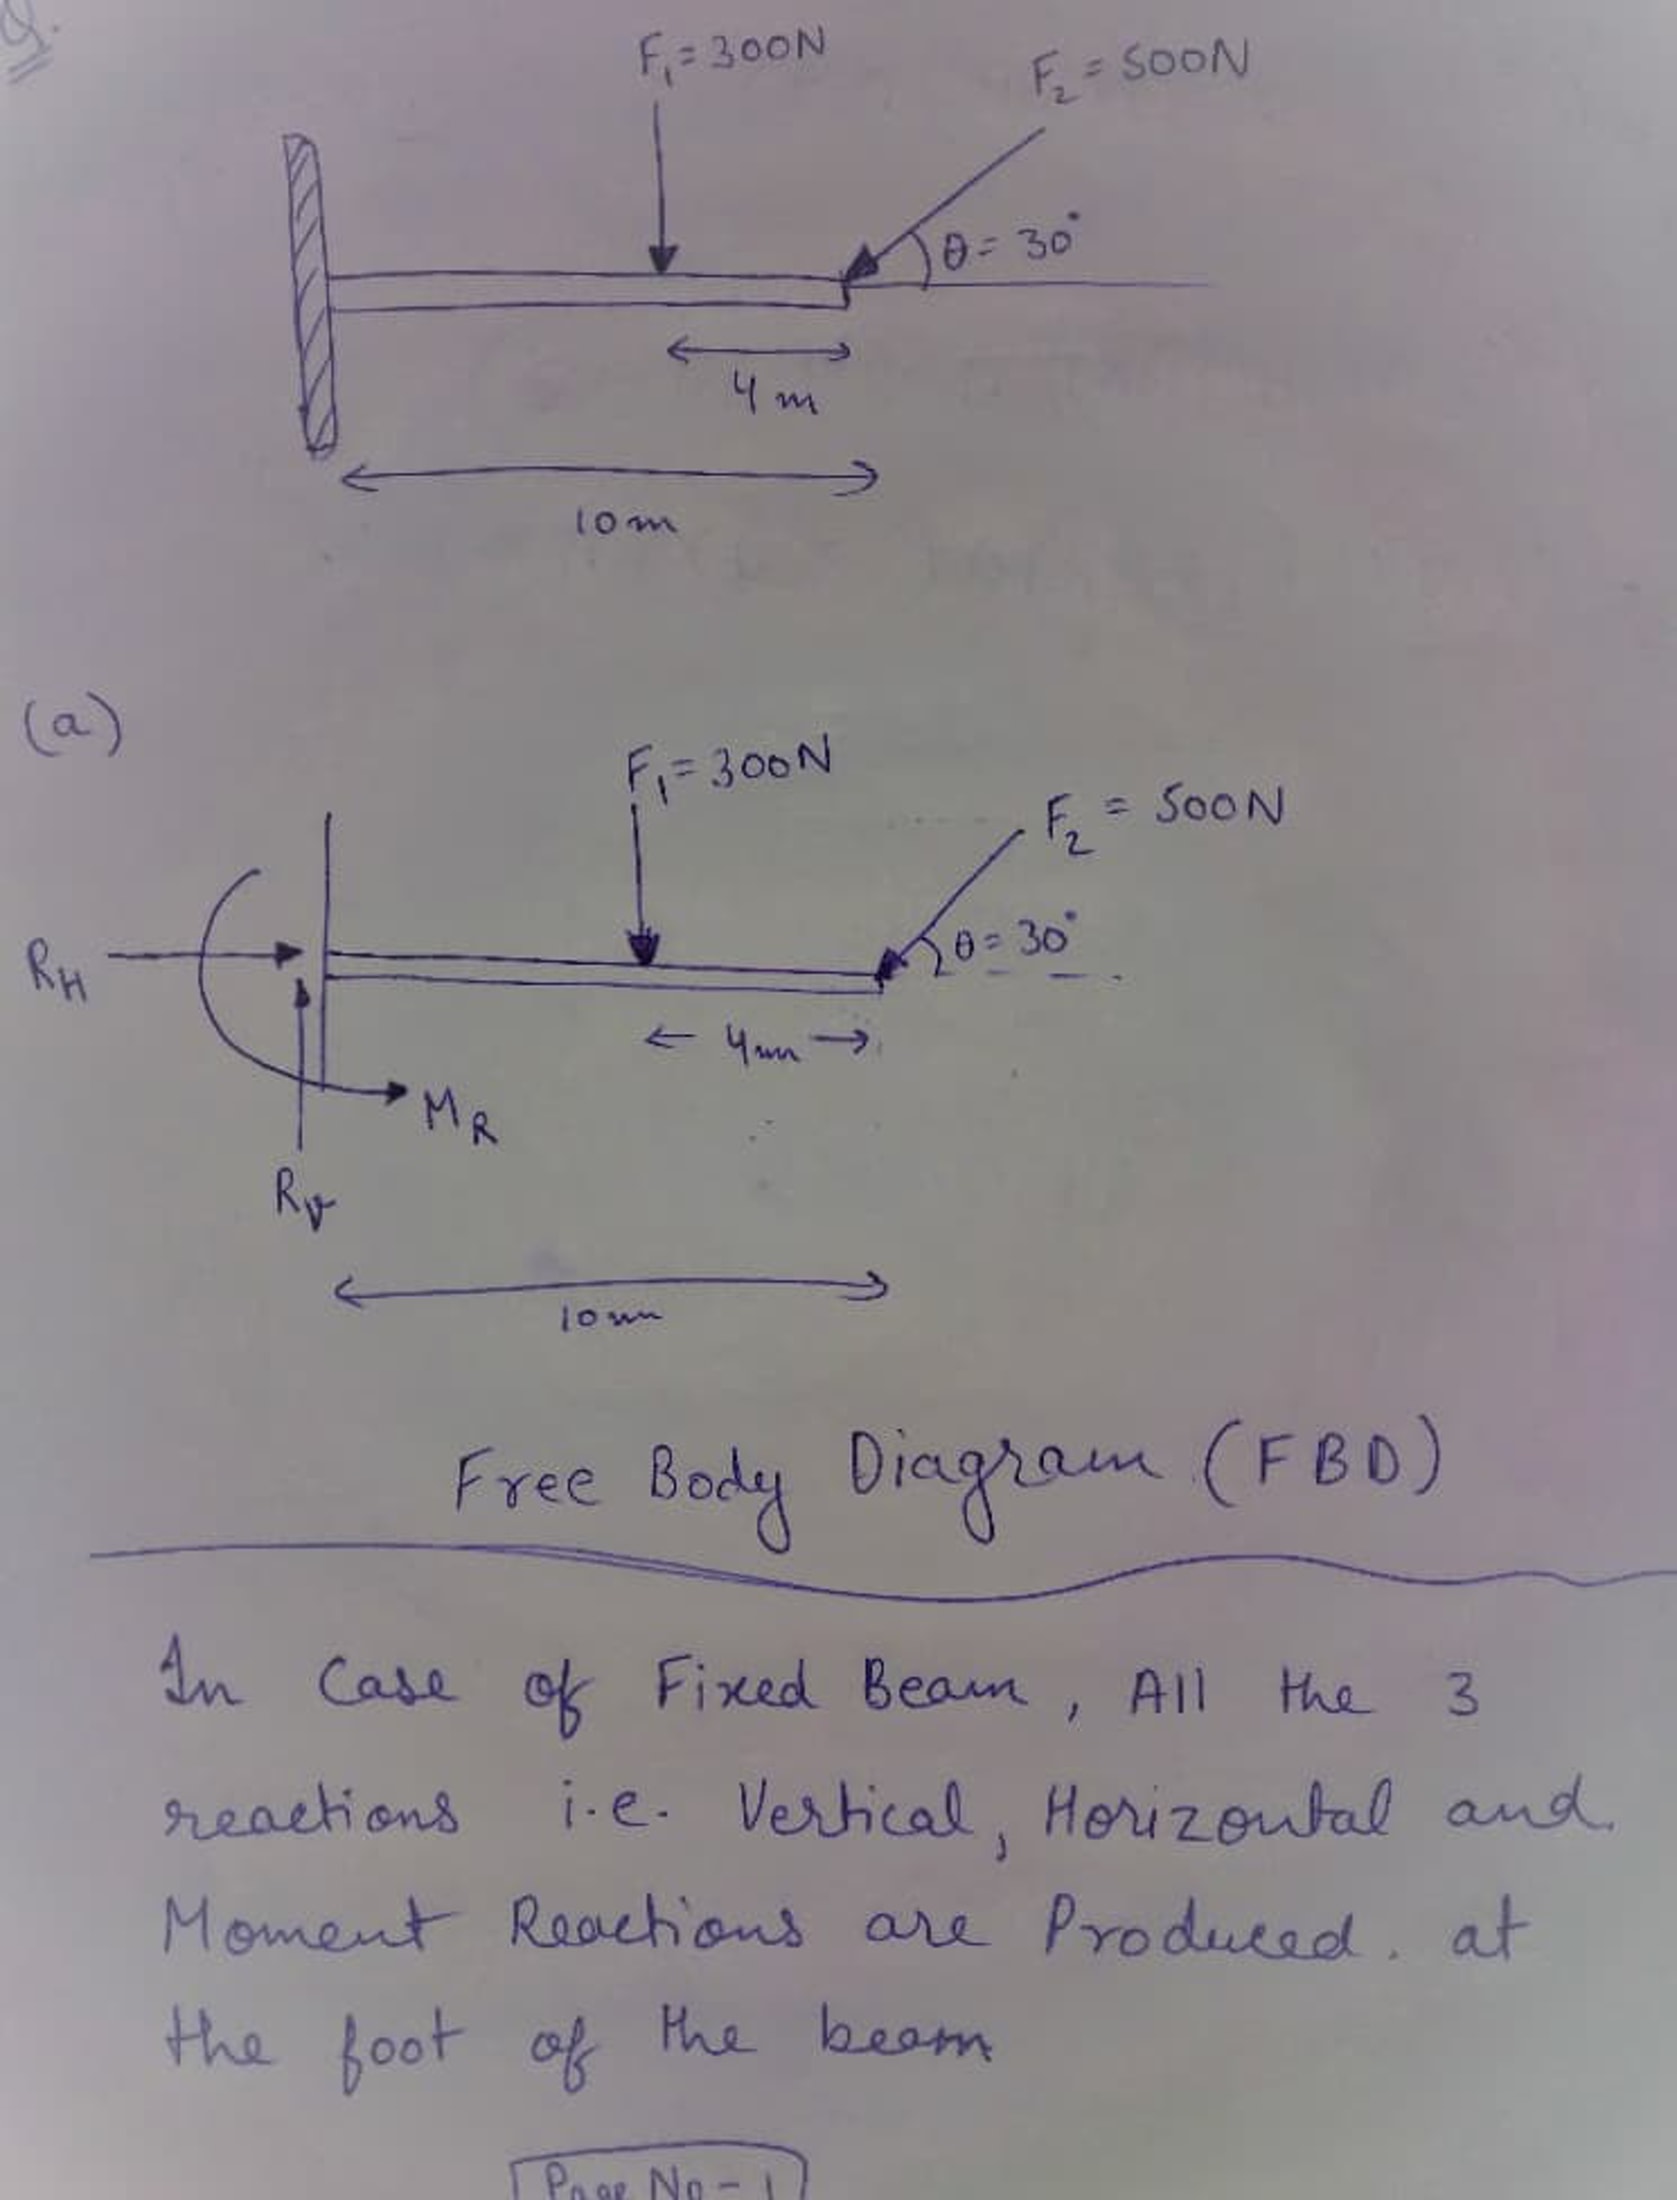 Q.
F₁ = 300N
F₂ = 500N
θ = 30°
4 m
10 m
(a)
F₁ = 300N
F₂ = 500N
R_H
θ = 30°
4m
M_R
R_V
10m
Free Body Diagram (FBD)
In Case of Fixed Beam, All the 3
reactions i.e. Vertical, Horizontal and
Moment Reactions are Produced. at
the foot of the beam
Page No - 1